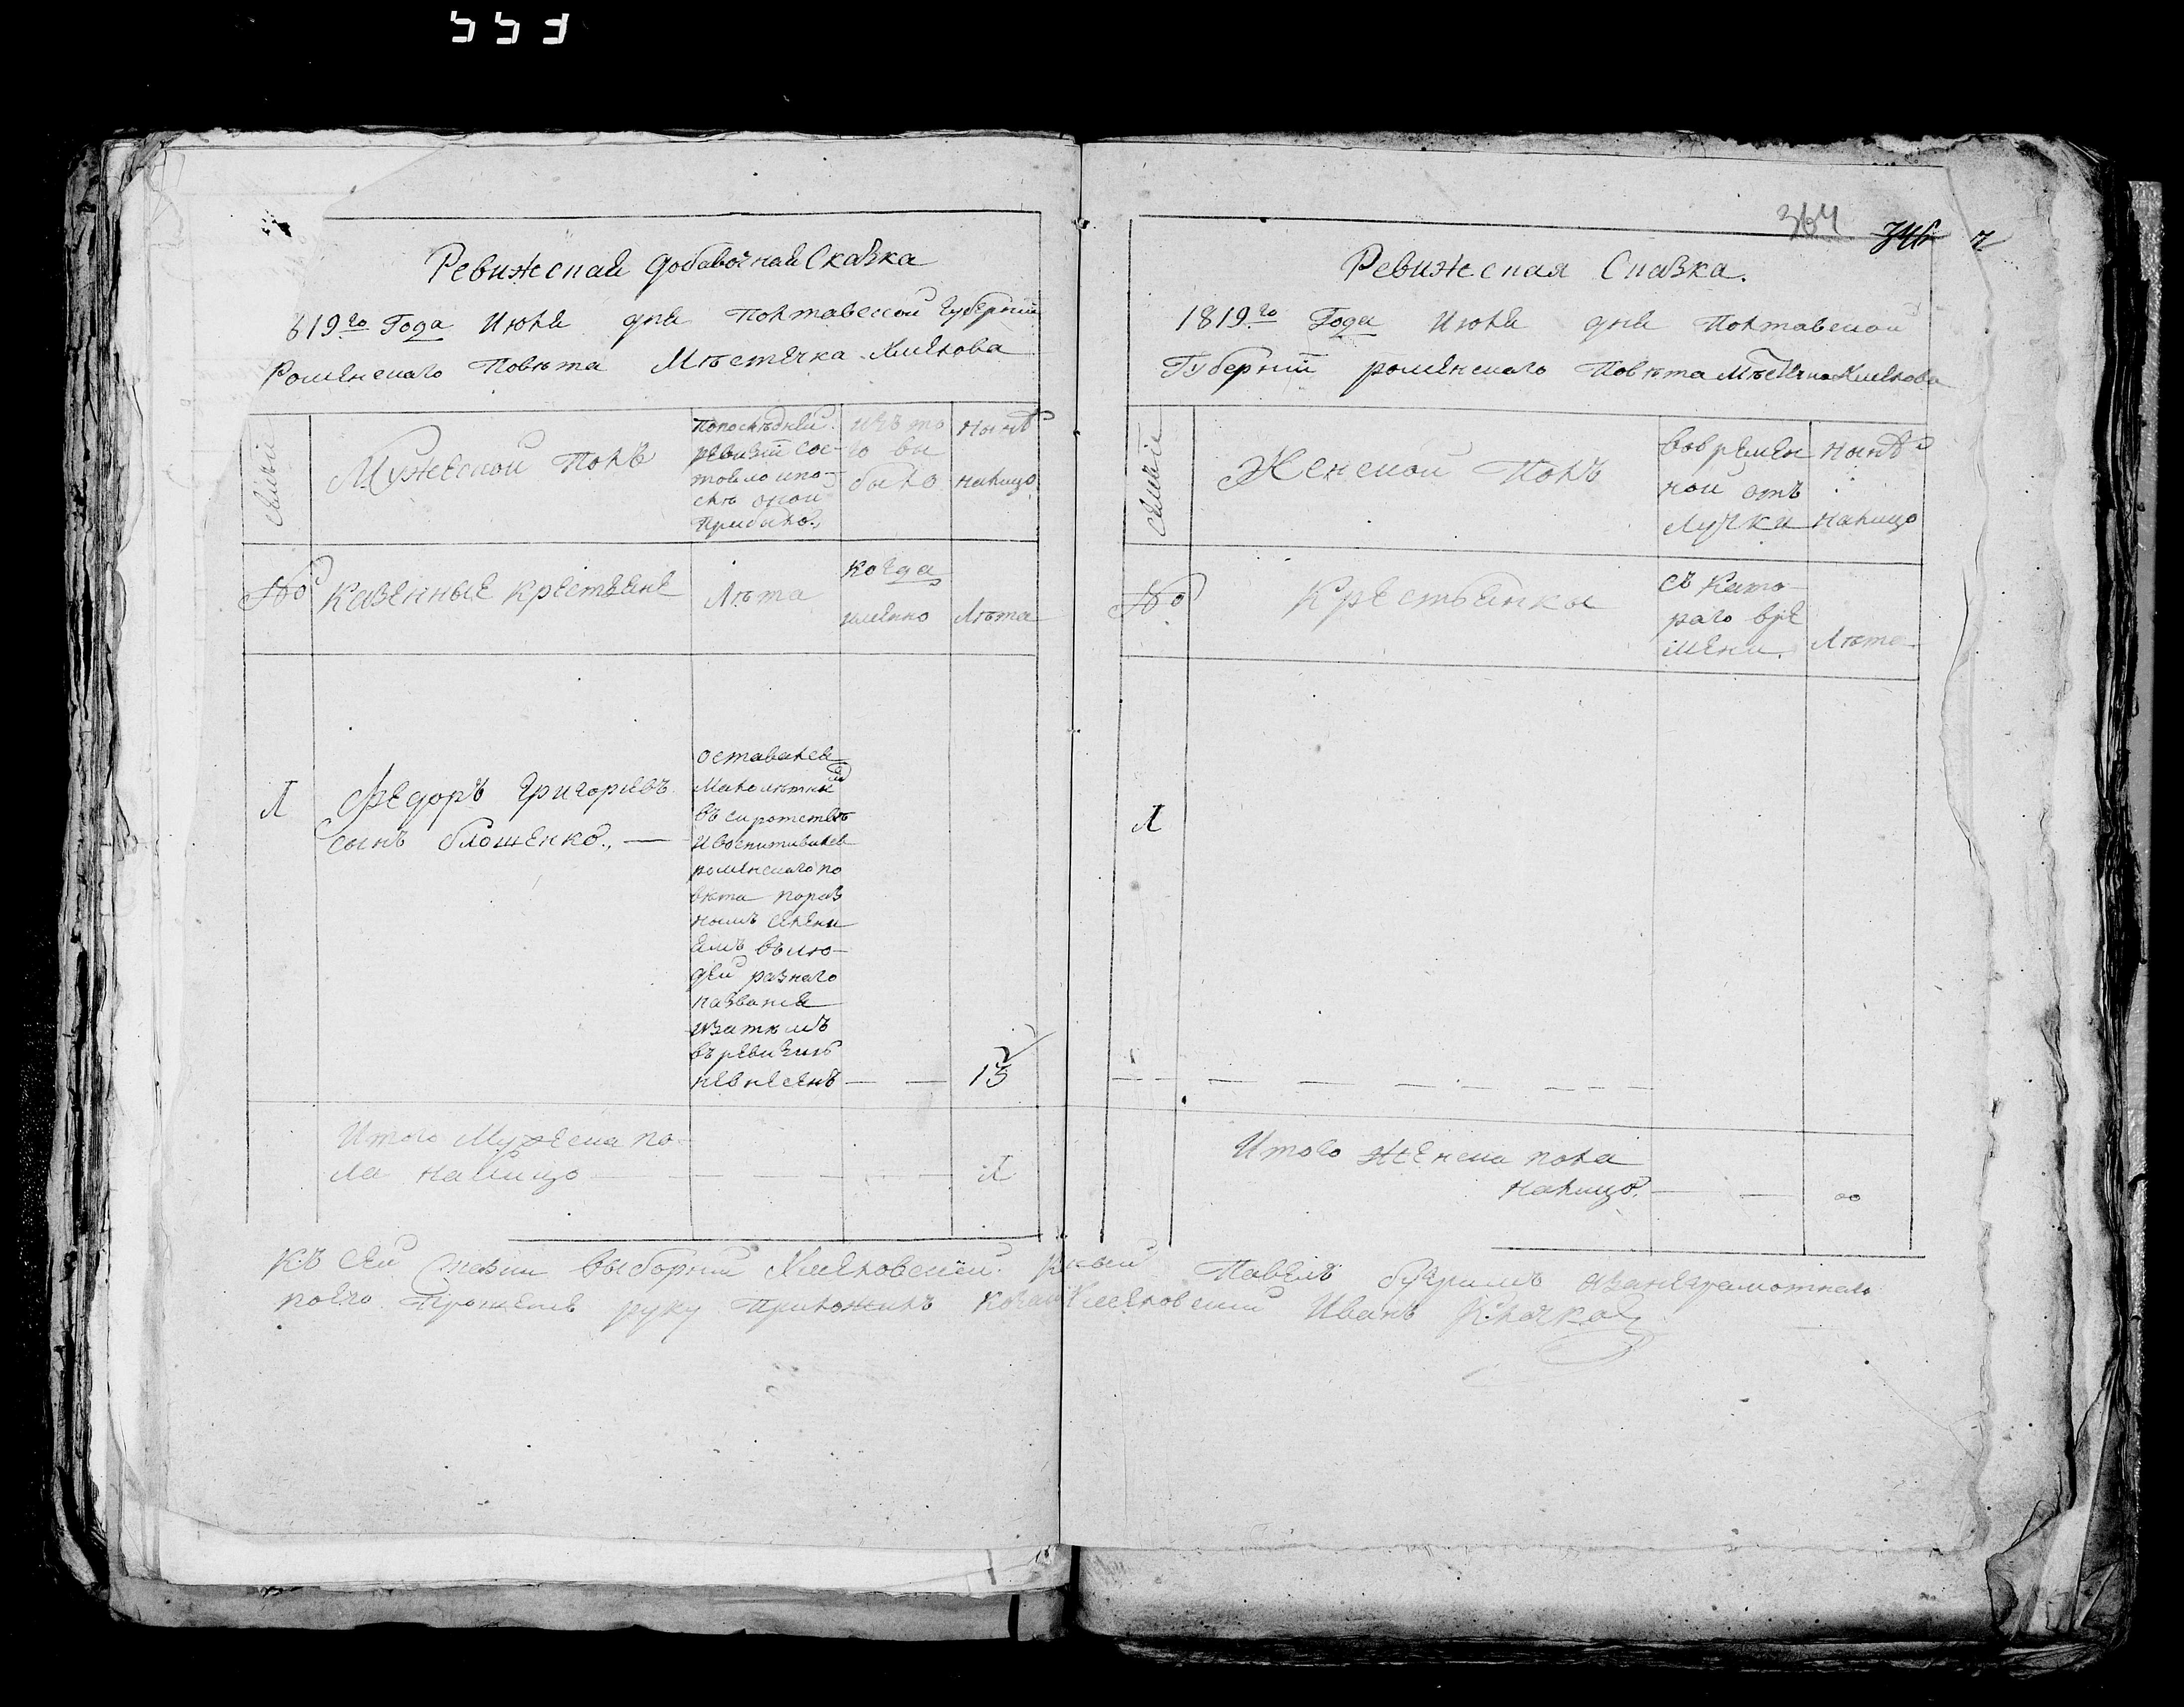 Ревижская добавочная Сказка
1819го Года Июня дня Полтавской Губернии
Роменскаго Повѣта Мѣстечка Хмѣлова
семьи
Мужеской Полъ
Попоследней
ревизіи сос-
тояло ипо-
слѣ оной
прибыло.,
изъ то
го вы
было
Нынѣ
налицо
№
Казенные крестьяне
Лѣта
Когда
именно
Лѣта
1
Федоръ Григориевъ
сынъ блощенко., —
оставался
малолѣтны
въ сиротствѣ
ивоспитывался
роменскаго по
вѣта
людей разнаго
названия
изатѣмъ
въ ревизию
невнесенъ — — 15
Итого Мужеска по-
ла налицо — — — — 1
364 746 7
Ревижская Сказка.
1819го Года Июня дня Полтавской
Губерніи роменскаго Повѣта Мѣстечка Хмѣлова
семьи
Женской Полъ
вовремен
ной отъ
лучки
Нынѣ
налицо
№
Крестьянки
съ Като-
раго вре
мени.
Лѣта
1
Итого женска пола
налицо. — — 00
Къ сей скаски выборний Хмѣловский Павелъ анеграмотнаго
поего Прошение руку Приложилъ Хмѣловский Иванъ